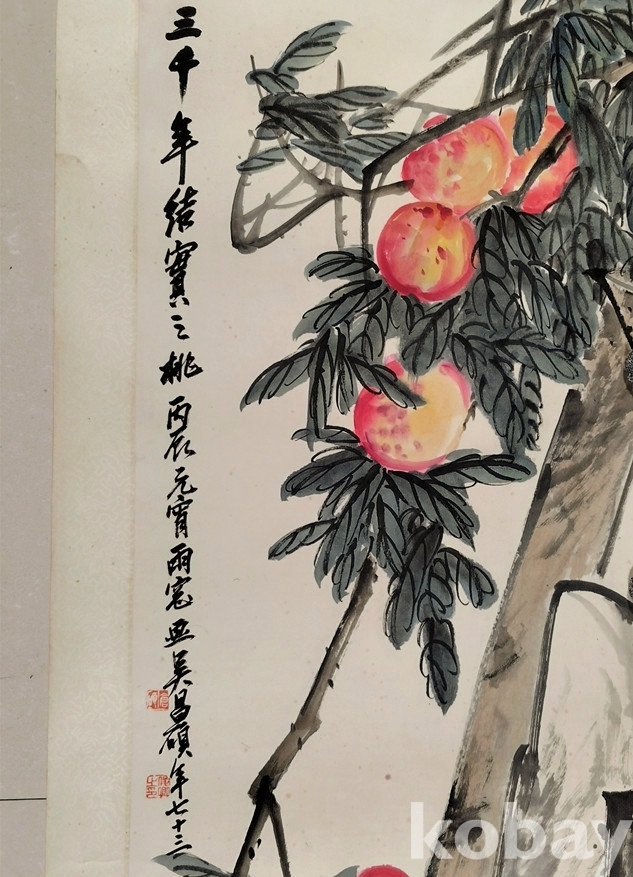 三千年结實之桃丙辰元宵雨窓吴昌碩年七十三
kobay